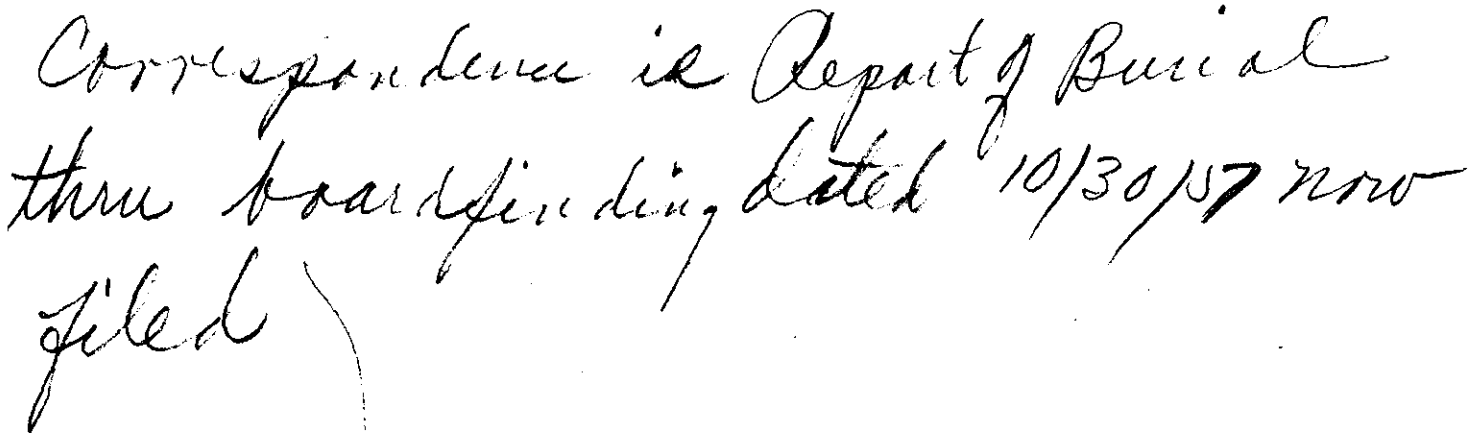 Correspondence is Report of Burial
thru board finding dated 10/30/57 now
filed